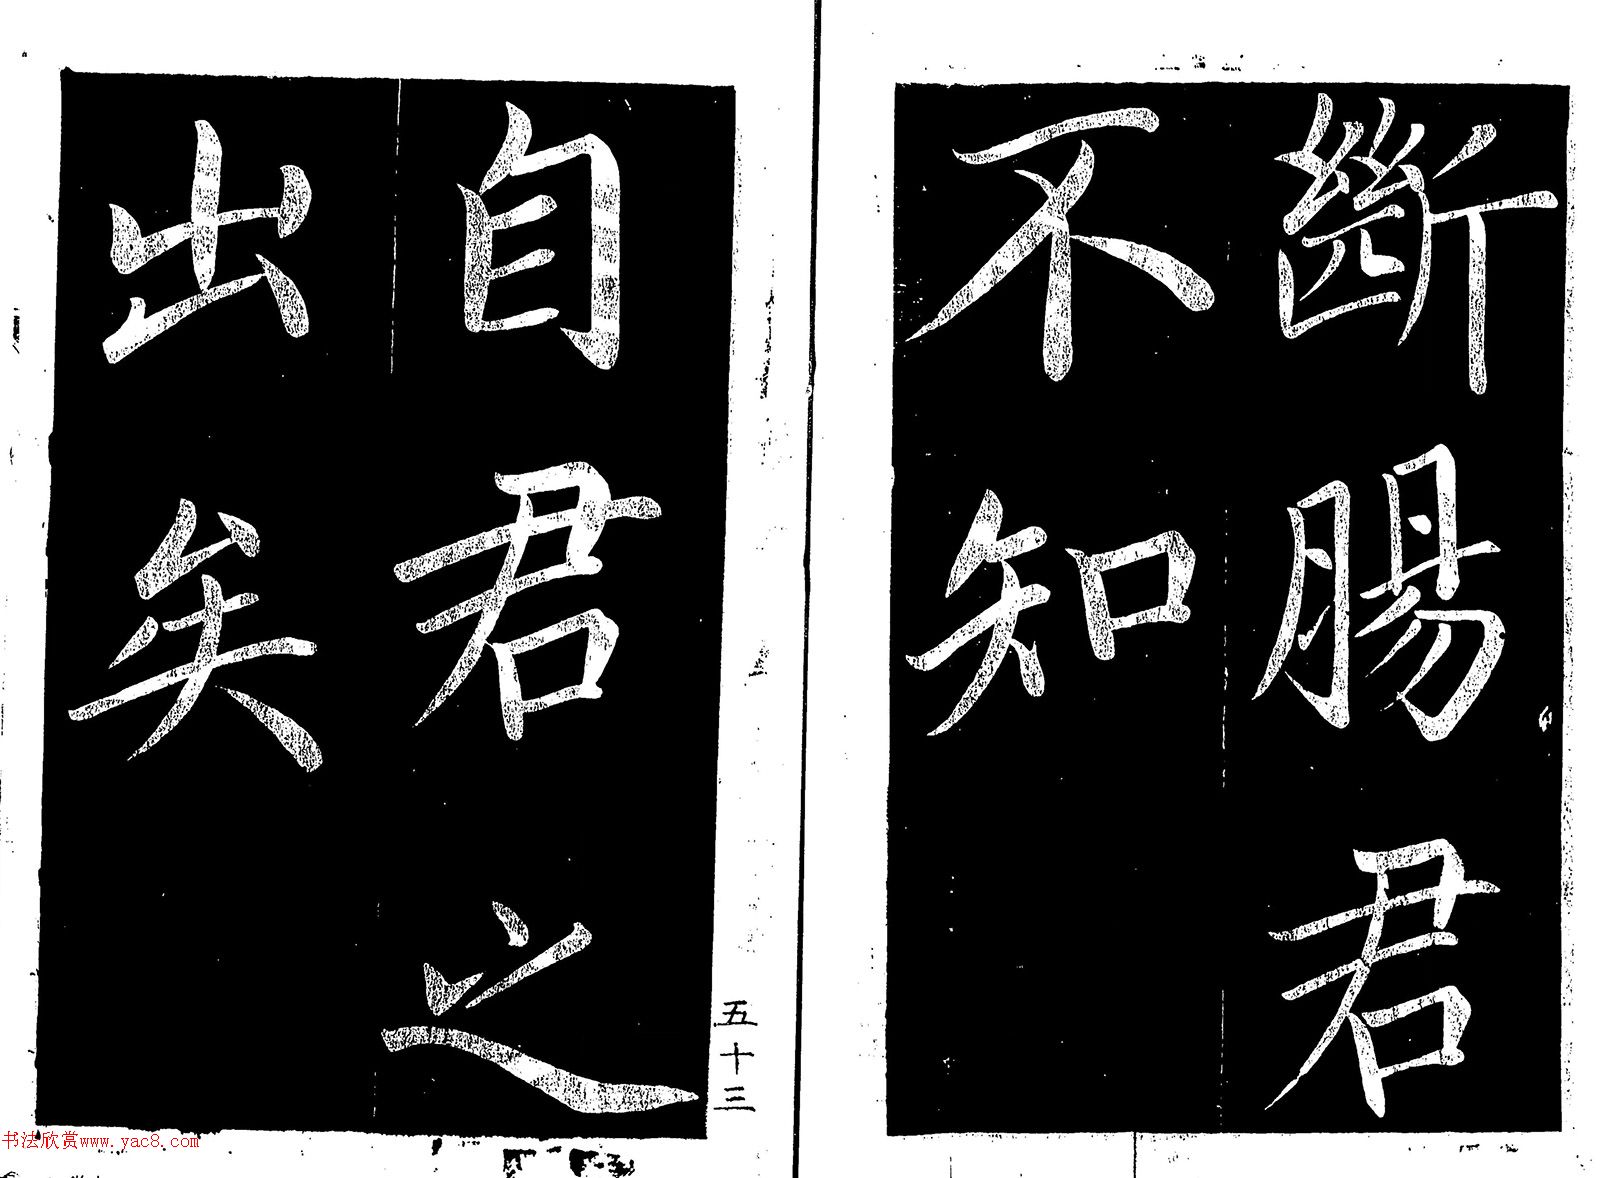 斷腸君
不知
自君之
出矣
五十三
书法欣赏www.yac8.com